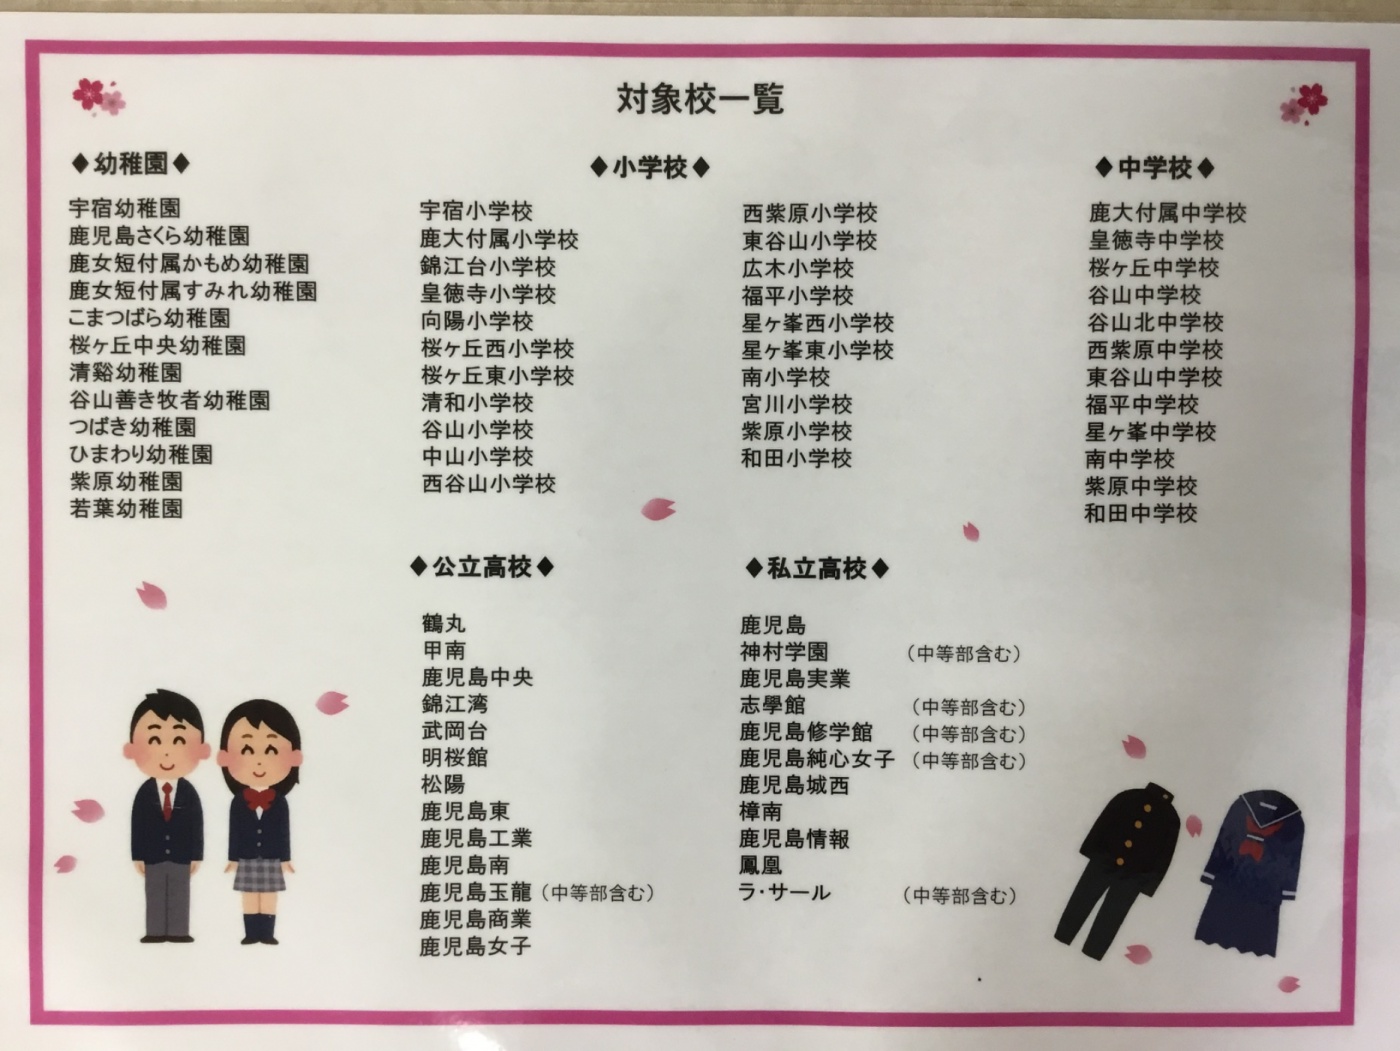 対象校一覧
◆幼稚園◆
宇宿幼稚園
鹿児島さくら幼稚園
鹿女短付属かもめ幼稚園
鹿女短付属すみれ幼稚園
こまつばら幼稚園
桜ヶ丘中央幼稚園
清谿幼稚園
谷山善き牧者幼稚園
つばき幼稚園
ひまわり幼稚園
紫原幼稚園
若葉幼稚園
◆小学校◆
宇宿小学校
鹿大付属小学校
錦江台小学校
皇徳寺小学校
向陽小学校
桜ヶ丘西小学校
桜ヶ丘東小学校
清和小学校
谷山小学校
中山小学校
西谷山小学校
西紫原小学校
東谷山小学校
広木小学校
福平小学校
星ヶ峯西小学校
星ヶ峯東小学校
南小学校
宮川小学校
紫原小学校
和田小学校
◆中学校◆
鹿大付属中学校
皇徳寺中学校
桜ヶ丘中学校
谷山中学校
谷山北中学校
西紫原中学校
東谷山中学校
福平中学校
星ヶ峯中学校
南中学校
紫原中学校
和田中学校
◆公立高校◆
鶴丸
甲南
鹿児島中央
錦江湾
武岡台
明桜館
松陽
鹿児島東
鹿児島工業
鹿児島南
鹿児島玉龍（中等部含む）
鹿児島商業
鹿児島女子
◆私立高校◆
鹿児島
神村学園 （中等部含む）
鹿児島実業
志學館 （中等部含む）
鹿児島修学館 （中等部含む）
鹿児島純心女子 （中等部含む）
鹿児島城西
樟南
鹿児島情報
鳳凰
ラ・サール （中等部含む）